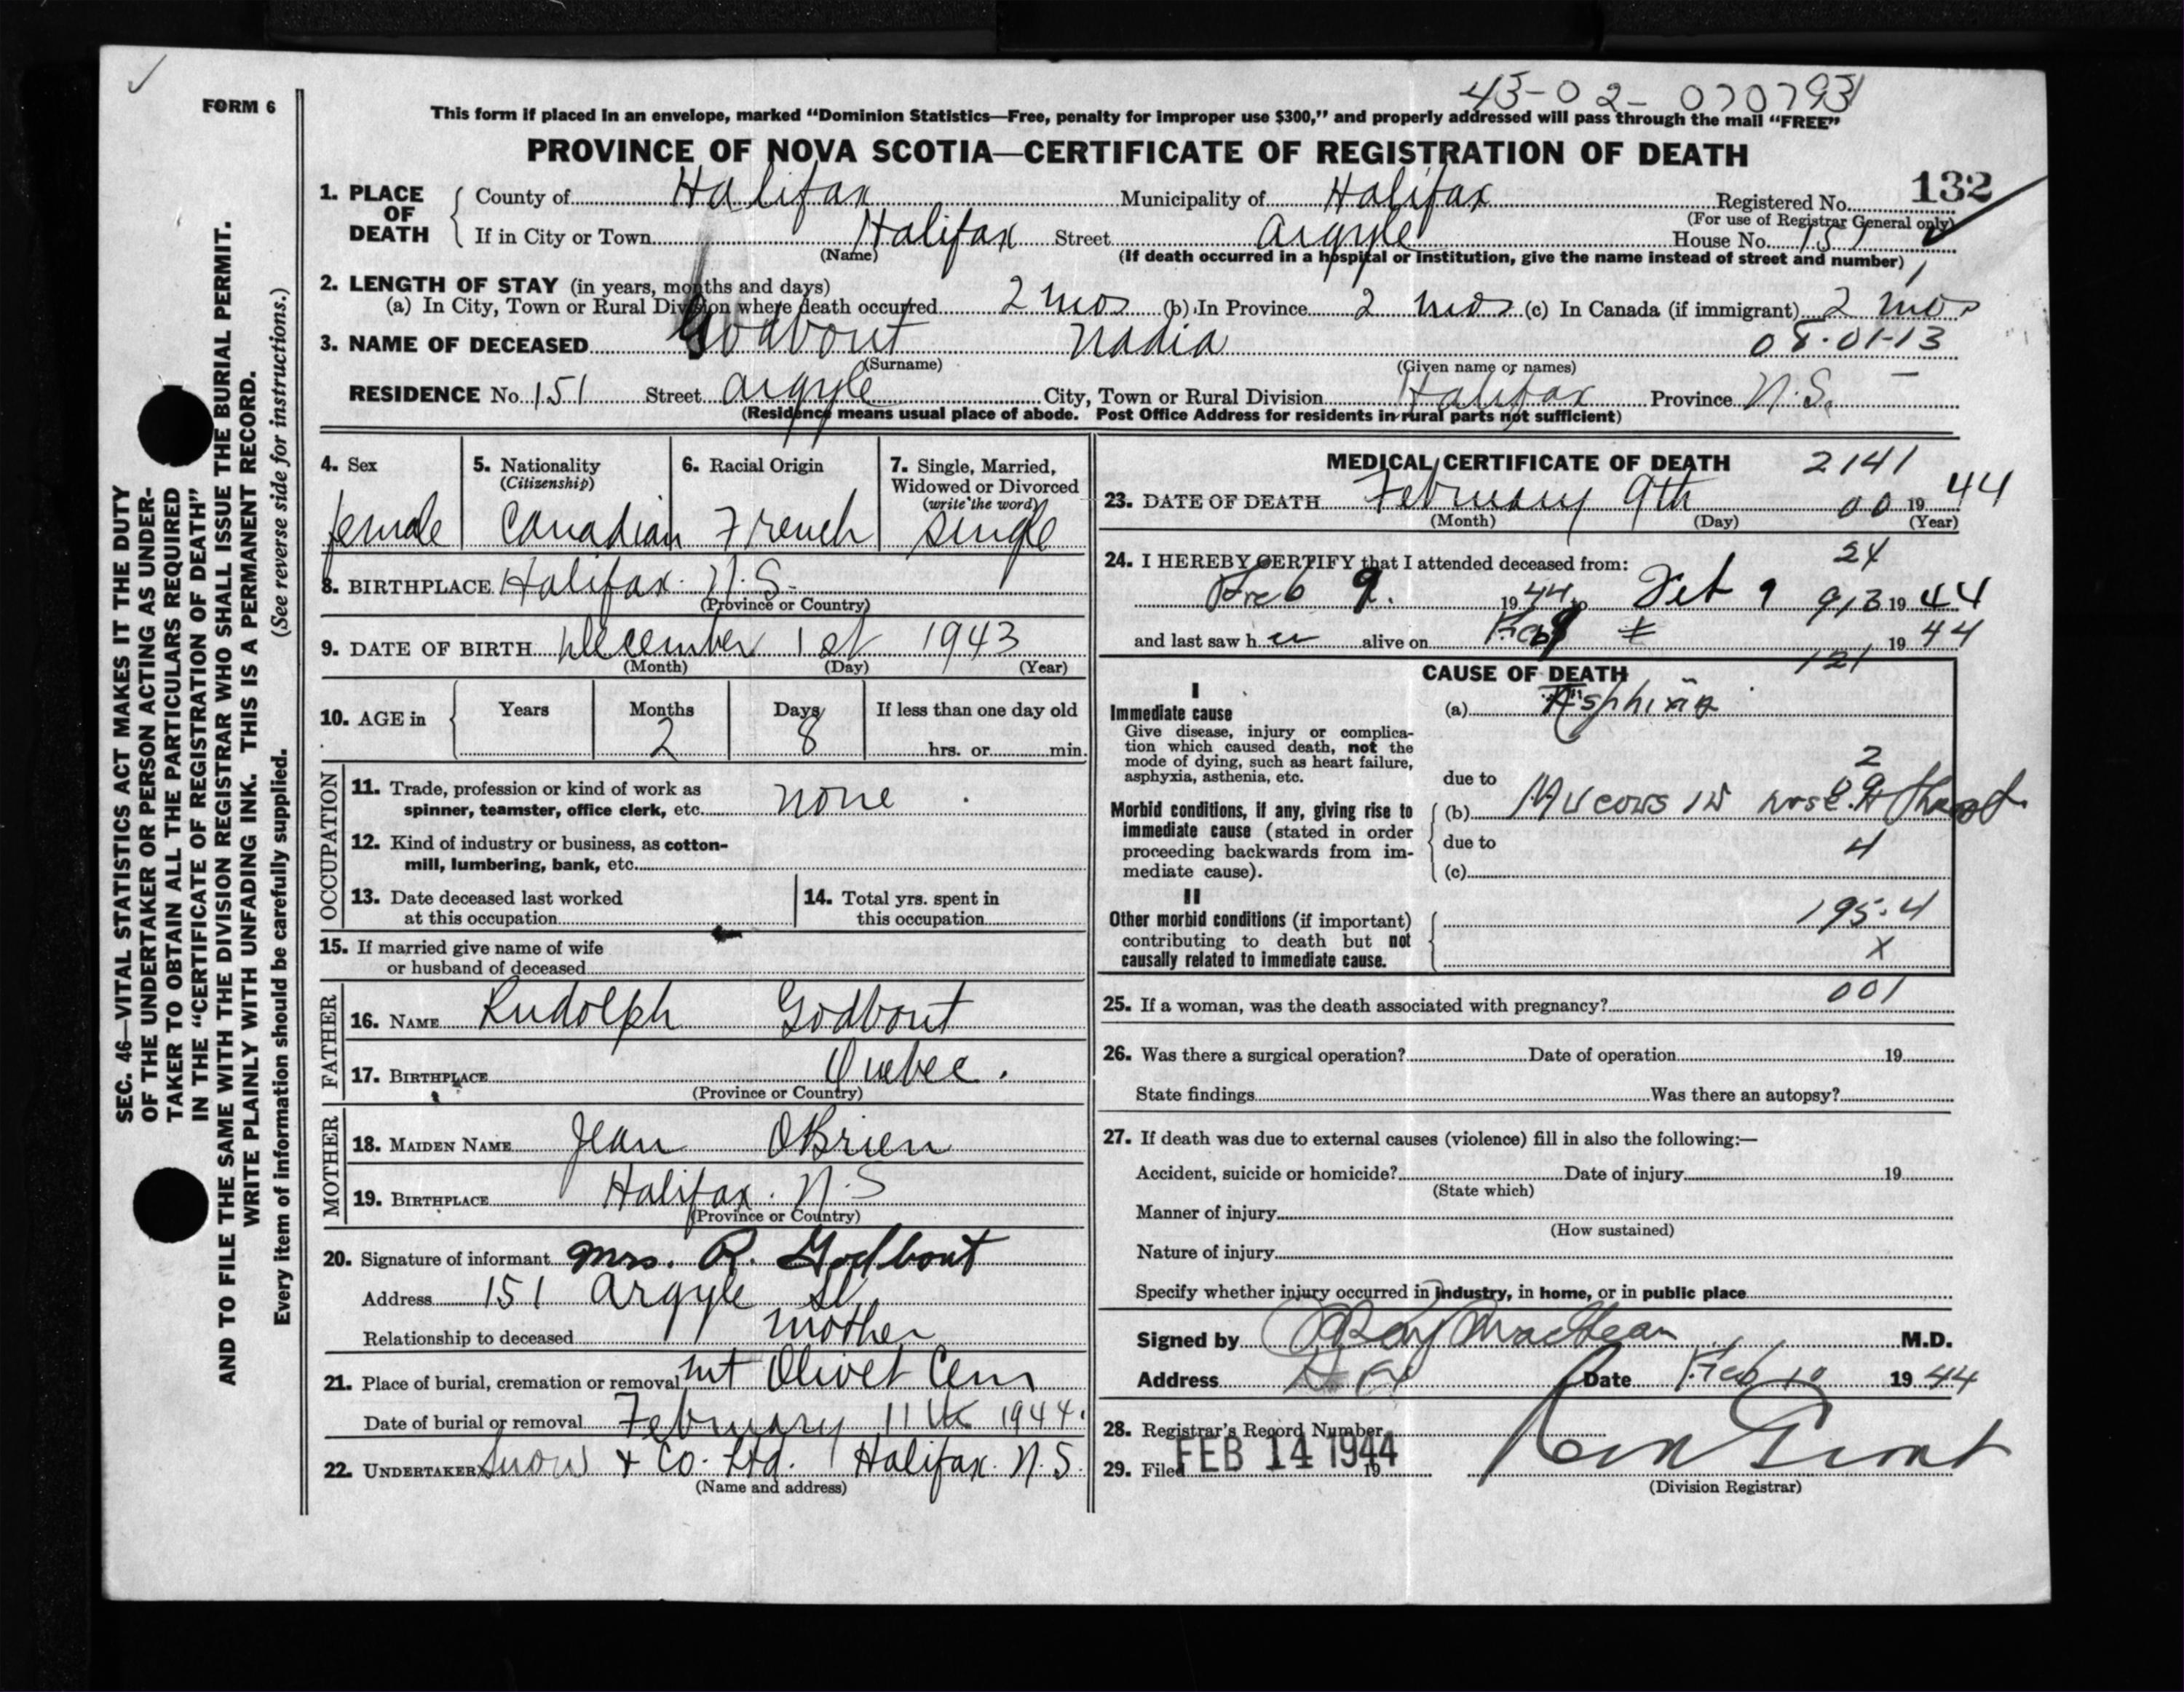 43-02-070793
FORM 6
This form if placed in an envelope, marked “Dominion Statistics—Free, penalty for improper use $300,” and properly addressed will pass through the mail “FREE”
PROVINCE OF NOVA SCOTIA—CERTIFICATE OF REGISTRATION OF DEATH
132
1. PLACE OF DEATH
County of Halifax Municipality of Halifax Registered No.
(For use of Registrar General only)
If in City or Town Halifax Street Argyle House No. 151
(Name) (If death occurred in a hospital or institution, give the name instead of street and number)
2. LENGTH OF STAY (in years, months and days)
(a) In City, Town or Rural Division where death occurred 2 mos (b) In Province 2 mos (c) In Canada (if immigrant) 2 mos
3. NAME OF DECEASED Godbout Nadia 08-01-13
(Surname) (Given name or names)
RESIDENCE No. 151 Street Argyle City, Town or Rural Division Halifax Province N.S.
(Residence means usual place of abode. Post Office Address for residents in rural parts not sufficient)
4. Sex
female
5. Nationality
(Citizenship)
Canadian
6. Racial Origin
French
7. Single, Married,
Widowed or Divorced
(write the word)
single
8. BIRTHPLACE Halifax. N.S.
(Province or Country)
9. DATE OF BIRTH December 1st 1943
(Month) (Day) (Year)
10. AGE in Years Months Days If less than one day old
2 8 hrs. or min.
OCCUPATION
11. Trade, profession or kind of work as
spinner, teamster, office clerk, etc. none
12. Kind of industry or business, as cotton-
mill, lumbering, bank, etc.
13. Date deceased last worked
at this occupation
14. Total yrs. spent in
this occupation
15. If married give name of wife
or husband of deceased
FATHER
16. NAME Rudolph Godbout
17. BIRTHPLACE Quebec.
(Province or Country)
MOTHER
18. MAIDEN NAME Jean OBrien
19. BIRTHPLACE Halifax. N.S
(Province or Country)
20. Signature of informant Mrs. R. Godbout
Address 151 Argyle St.
Relationship to deceased mother
21. Place of burial, cremation or removal Mt Olivet Cem
Date of burial or removal February 11th 1944.
22. UNDERTAKER Snow & Co. Ltd. Halifax. N.S.
(Name and address)
MEDICAL CERTIFICATE OF DEATH 2141
23. DATE OF DEATH February 9th 00 19 44
(Month) (Day) (Year)
24. I HEREBY CERTIFY that I attended deceased from: 24
Feb 9. 19 44 to Feb 9 913 19 44
and last saw h er alive on Feb 9 19 44
121
CAUSE OF DEATH
I
Immediate cause
Give disease, injury or complica-
tion which caused death, not the
mode of dying, such as heart failure,
asphyxia, asthenia, etc.
(a) Asphixia
2
due to
Morbid conditions, if any, giving rise to
immediate cause (stated in order
proceeding backwards from im-
mediate cause).
(b) Mucous in nose & throat
due to
4
(c)
II
Other morbid conditions (if important)
contributing to death but not
causally related to immediate cause.
195.4
X
001
25. If a woman, was the death associated with pregnancy?
26. Was there a surgical operation? Date of operation 19
State findings Was there an autopsy?
27. If death was due to external causes (violence) fill in also the following:—
Accident, suicide or homicide? Date of injury 19
(State which)
Manner of injury
(How sustained)
Nature of injury
Specify whether injury occurred in industry, in home, or in public place
Signed by Roy MacLean M.D.
Address Date Feb 10 19 44
28. Registrar's Record Number
29. Filed FEB 14 1944 19
(Division Registrar)
SEC. 46—VITAL STATISTICS ACT MAKES IT THE DUTY
OF THE UNDERTAKER OR PERSON ACTING AS UNDER-
TAKER TO OBTAIN ALL THE PARTICULARS REQUIRED
IN THE “CERTIFICATE OF REGISTRATION OF DEATH”
AND TO FILE THE SAME WITH THE DIVISION REGISTRAR WHO SHALL ISSUE THE BURIAL PERMIT.
WRITE PLAINLY WITH UNFADING INK. THIS IS A PERMANENT RECORD.
Every item of information should be carefully supplied. (See reverse side for instructions.)